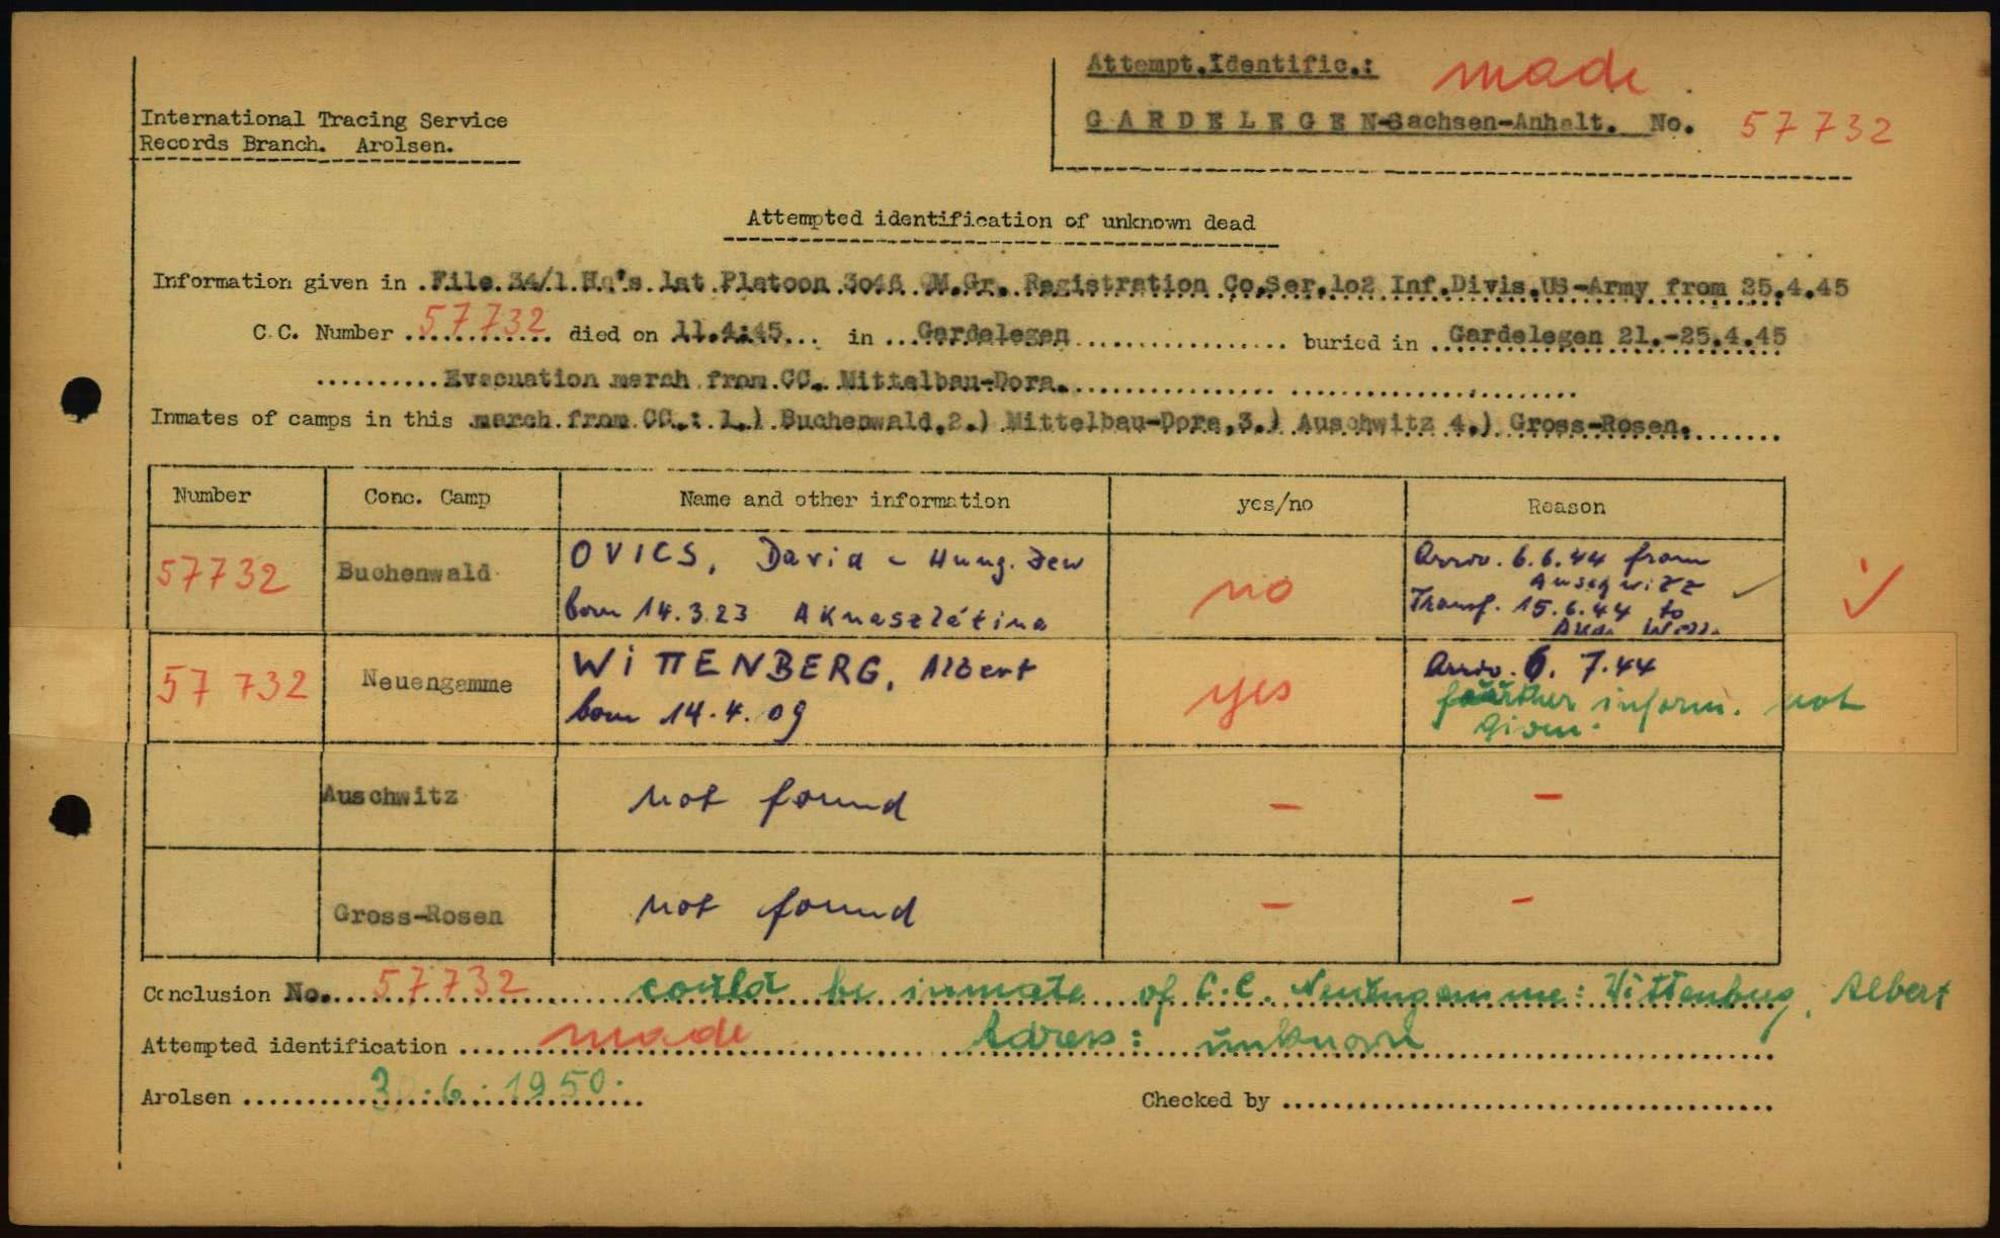 Attempt.Identific.: made
GARDELEGEN-Sachsen-Anhalt. No. 57732
International Tracing Service
Records Branch. Arolsen.
Attempted identification of unknown dead
Information given in File 34/1 Hq's 1at Platoon 3046 QM.Gr. Registration Co.Ser.1o2 Inf.Divis.US-Army from 25.4.45
C.C. Number 57732 died on 11.4.45 in Gardelegen buried in Gardelegen 21.-25.4.45
Evacuation march from CC. Mittelbau-Dora.
Inmates of camps in this march from CC.: 1.) Buchenwald,2.) Mittelbau-Dora,3.) Auschwitz 4.) Gross-Rosen.
Number Conc. Camp Name and other information yes/no Reason
57732 Buchenwald OVICS, David - Hung. Jew no Arriv. 6.6.44 from
Auschwitz
born 14.3.23 Aknaszlátina Transf. 15.6.44 to
57 732 Neuengamme WITTENBERG, Albert yes Arriv. 6. 7.44
born 14.4.09 further inform. not
given.
Auschwitz not found - -
Gross-Rosen not found - -
Conclusion No. 57732 could be inmate of C.C. Neuengamme: Wittenberg, Albert
Attempted identification made Adress: unknown
Arolsen 30.6.1950.
Checked by